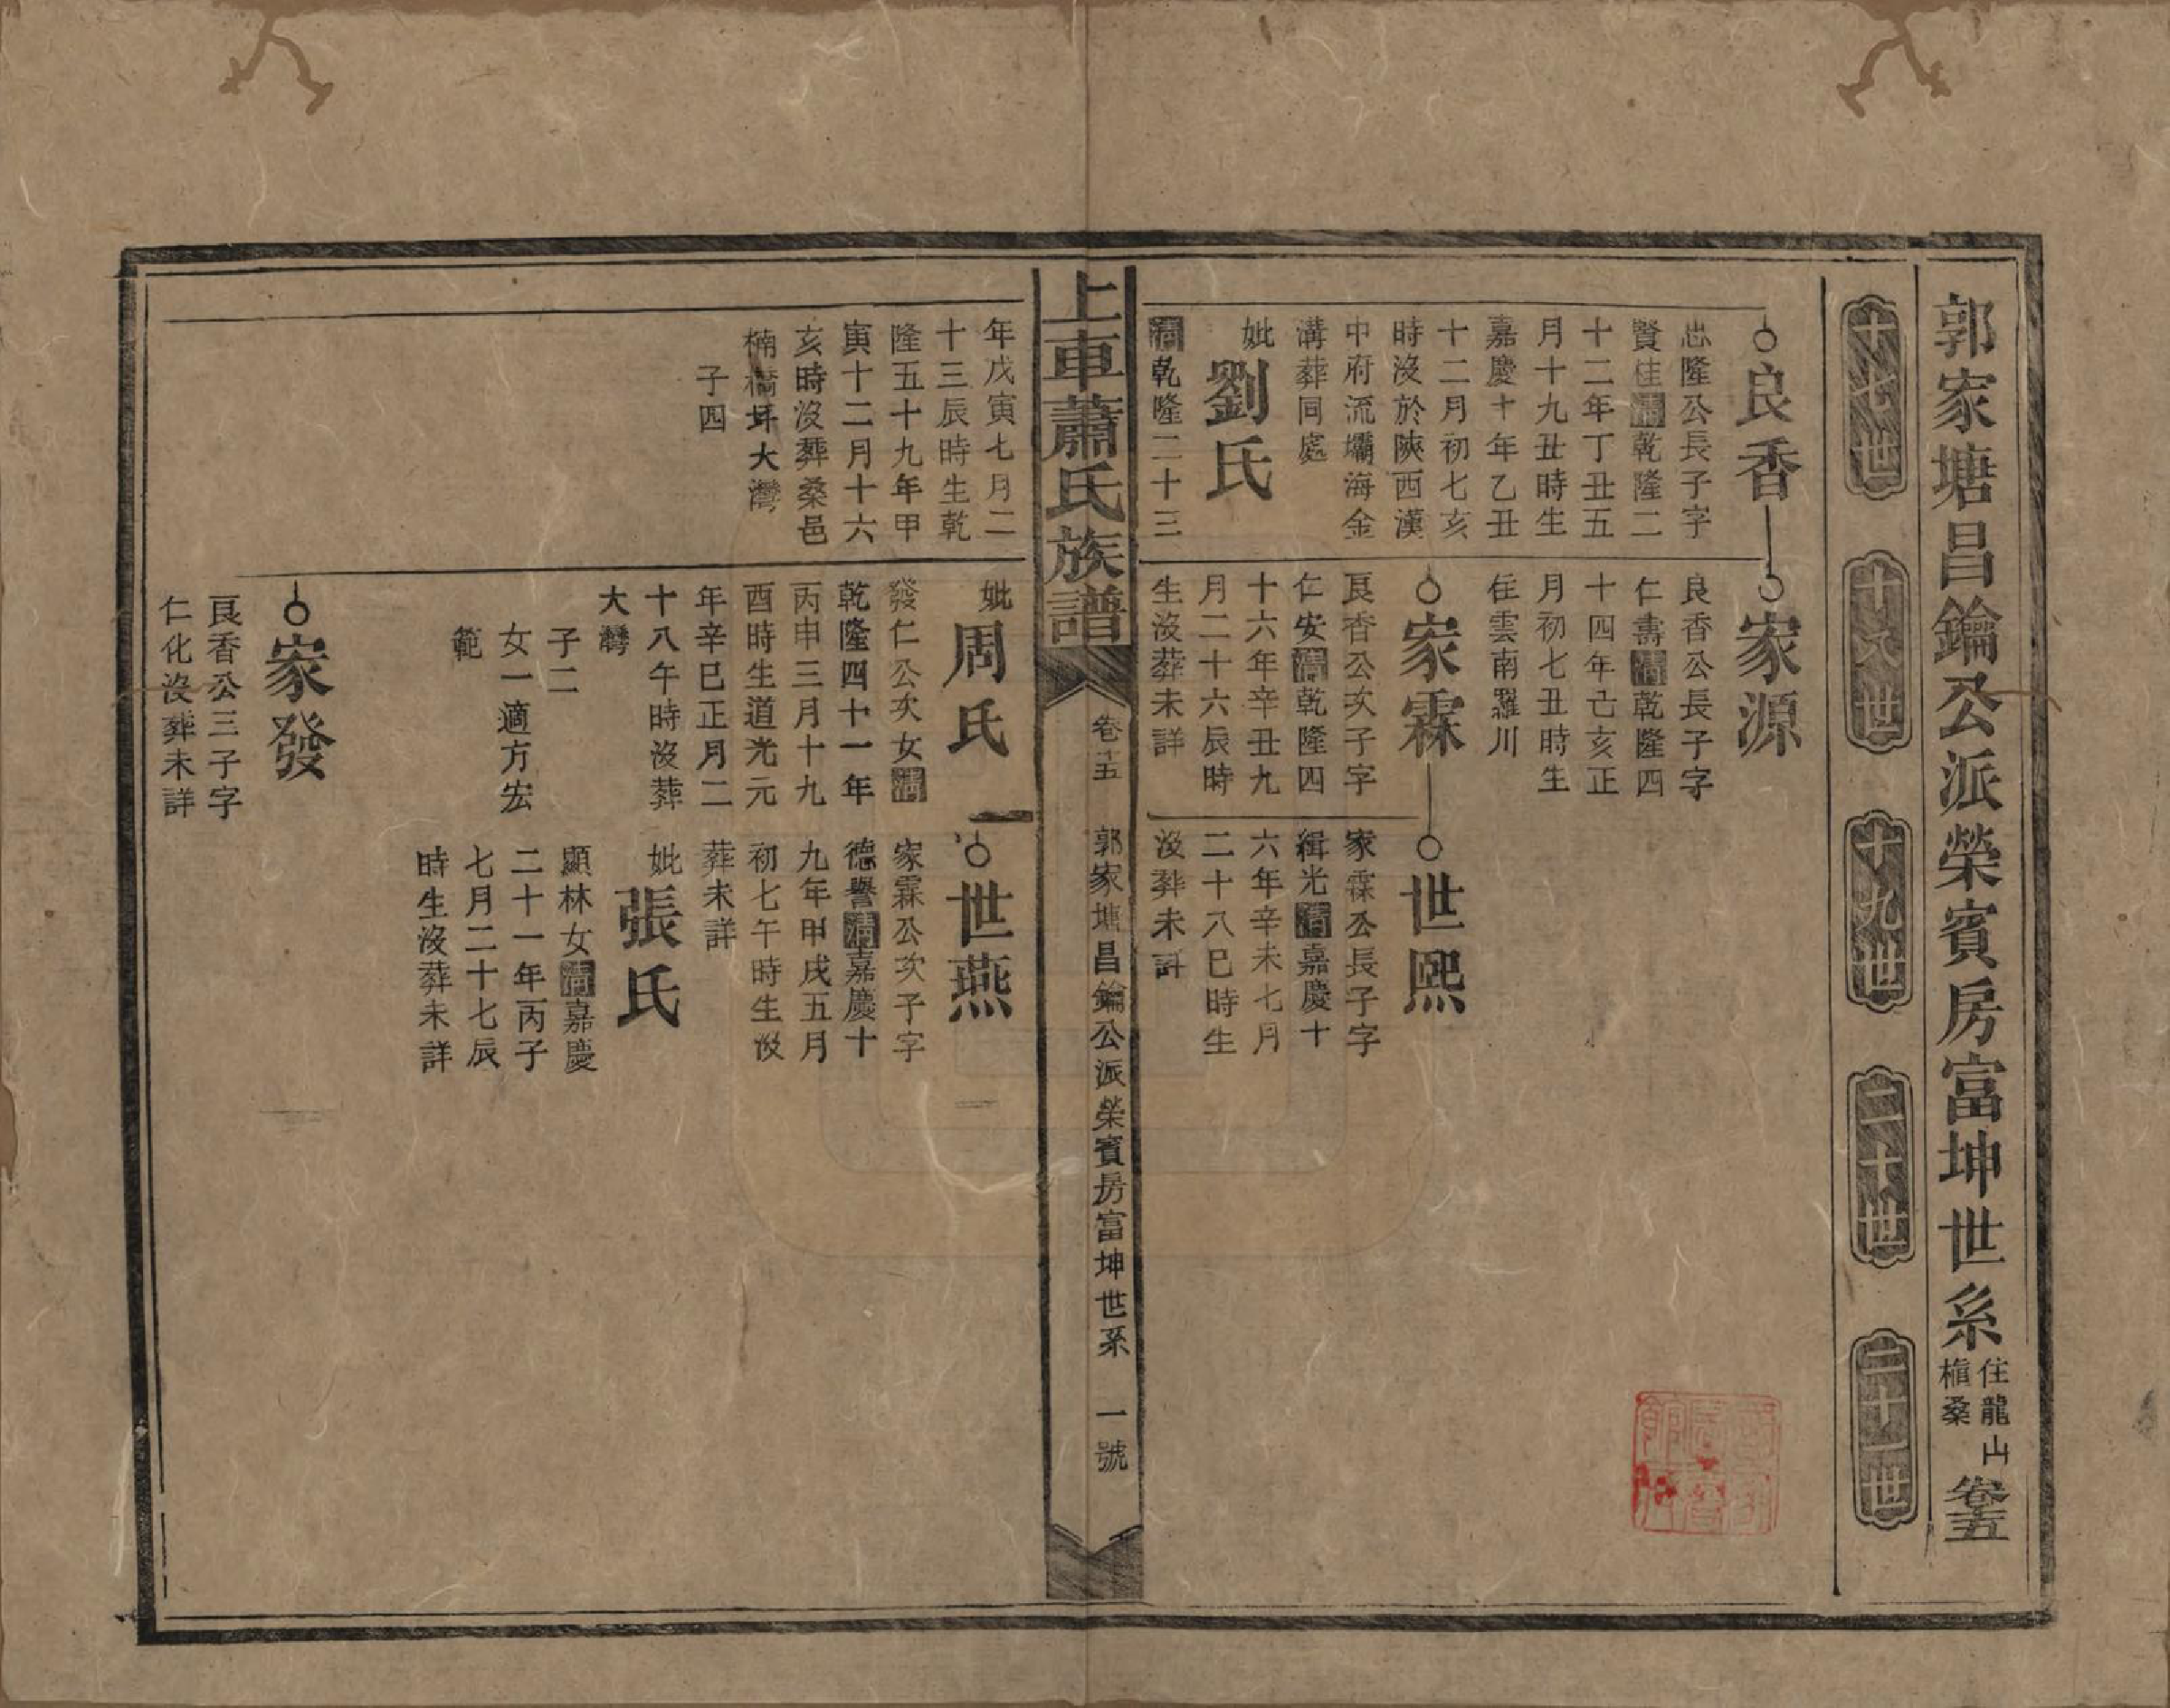 郭家塘昌鑰公派榮賓房富坤世系
住龍山
植桑
卷十五
十七世
十八世
十九世
二十世
二十一世
良香
志隆公長子字
賢桂清乾隆二
十二年丁丑五
月十九丑時生
嘉慶十年乙丑
十二月初七亥
時沒於陝西漢
中府流壩海金
溝葬同處
妣劉氏
清乾隆二十三
家源
良香公長子字
仁壽清乾隆四
十四年亡亥正
月初七丑時生
住雲南羅川
家霖
良香公次子字
仁安清乾隆四
十六年辛丑九
月二十六辰時
生沒葬未詳
世熙
家霖公長子字
緝光清嘉慶十
六年辛未七月
二十八巳時生
沒葬未詳
上車蕭氏族譜
卷十五
郭家塘昌鑰公派榮賓房富坤世系
一號
年戊寅七月二
十三辰時生乾
隆五十九年甲
寅十二月十六
亥時沒葬桑邑
楠橋坪大灣
子四
妣周氏
發仁公次女清
乾隆四十一年
丙申三月十九
酉時生道光元
年辛巳正月二
十八午時沒葬
大灣
子二
女一適方宏
範
世燕
家霖公次子字
德譽清嘉慶十
九年甲戌五月
初七午時生沒
葬未詳
妣張氏
顯林女清嘉慶
二十一年丙子
七月二十七辰
時生沒葬未詳
家發
良香公三子字
仁化沒葬未詳